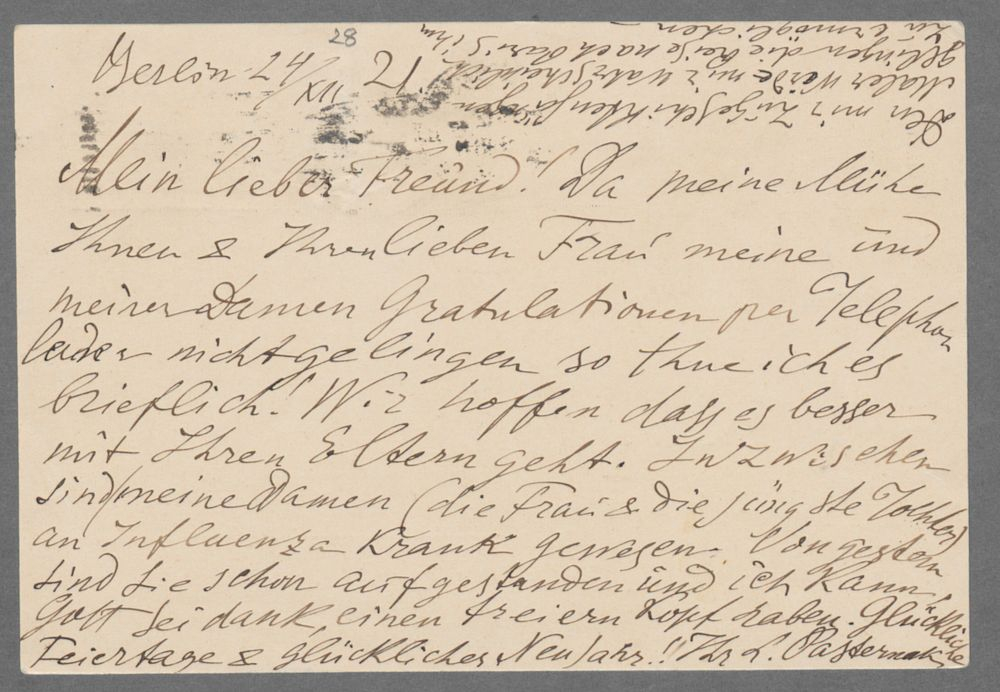 28
Berlin 24/XII 21.
Mein lieber Freund! Da meine Mühe
Ihnen & Ihren lieben Frau meine und
meiner Damen Gratulationen per Telephon
leider nicht gelingen so thue ich es
brieflich! Wir hoffen dass es besser
mit Ihren Eltern geht. Inzwischen
sind meine Damen (die Frau & die jüngste Tochter)
an Influenza Krank gewesen. Von gestern
sind sie schon aufgestanden und ich kann,
Gott sei dank, einen freiern Kopf haben. Glückliche
Feiertage & glückliches Neu Jahr!! Ihr L. Pasternak
Den mir zugeschickten jungen
Maler werde mir wahrscheinlich
gelingen die Reise nach Paris ihm
zu ermöglichen